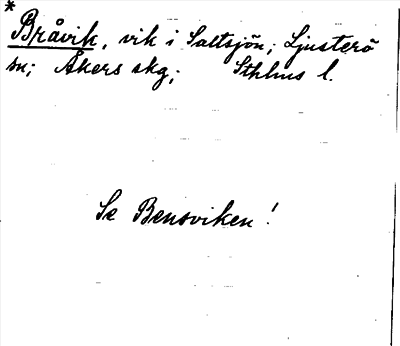 *
Bråvik, vik i Saltsjön; Ljusterö
sn; Åkers skg; Sthlms l.
Se Bensviken!